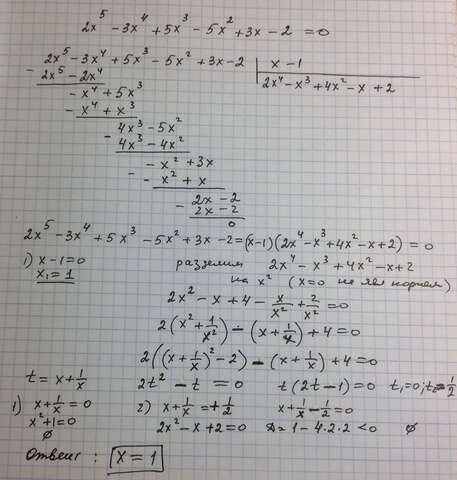 2x⁵ - 3x⁴ + 5x³ - 5x² + 3x - 2 = 0
2x⁵ - 3x⁴ + 5x³ - 5x² + 3x - 2 | x - 1
- 2x⁵ - 2x⁴ | 2x⁴ - x³ + 4x² - x + 2
- x⁴ + 5x³
- - x⁴ + x³
4x³ - 5x²
- 4x³ - 4x²
- x² + 3x
- - x² + x
2x - 2
- 2x - 2
0
2x⁵ - 3x⁴ + 5x³ - 5x² + 3x - 2 = (x-1)(2x⁴ - x³ + 4x² - x + 2) = 0
1) x - 1 = 0 разделим 2x⁴ - x³ + 4x² - x + 2
x₁ = 1 на x² (x=0 не явл корнем)
2x² - x + 4 - x/x² + 2/x² = 0
2(x² + 1/x²) - (x + 1/x) + 4 = 0
2((x + 1/x)² - 2) - (x + 1/x) + 4 = 0
t = x + 1/x 2t² - t = 0 t(2t-1) = 0 t₁=0; t₂=1/2
1) x + 1/x = 0 2) x + 1/x = +1/2 x + 1/x - 1/2 = 0
x² + 1 = 0 2x² - x + 2 = 0 D = 1 - 4·2·2 < 0 ∅
∅
Ответ: x = 1